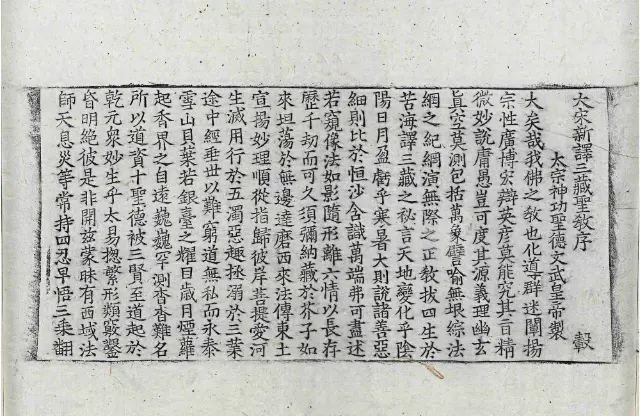 大宋新譯三藏聖教序
太宗神功聖德文武皇帝製 轂
大矣哉我佛之教也化導群迷闡揚
宗性廣博宏辯英彥莫能究其旨精
微妙說庸愚豈可度其源義理幽玄
真空莫測包括萬象譬喻無垠綜法
網之紀綱演無際之正教拔四生於
苦海譯三藏之秘言天地變化乎陰
陽日月盈虧乎寒暑大則說諸善惡
細則比於恒沙含識萬端弗可盡述
若窺像法如影隨形離六情以長存
歷千劫而可久須彌納藏於芥子如
來坦蕩於無邊達磨西來法傳東土
宣揚妙理順從指歸彼岸菩提愛河
生滅用行於五濁惡趣拯溺於三業
途中經垂世以難窮道無私而永泰
雪山貝葉若銀臺之耀目歲月煙蘿
起香界之自遠巍巍罕測杳杳難名
所以道資十聖德被三賢至道起於
乾元眾妙生乎太易揔繁形類竅鑿
昏明絕彼是非開茲蒙昧有西域法
師天息災等常持四忍早悟三乘翻